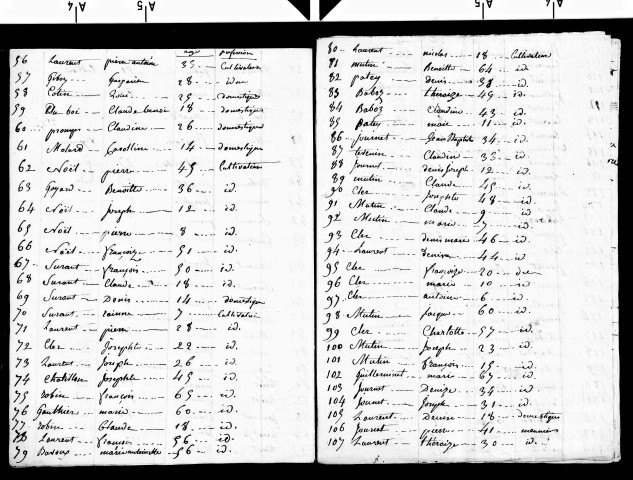 A 4
A 5
A 5
A 4
age profession
56 Laurent pierre antoine 35 Cultivateur
57 28 idem
58 25 domestique
59 Claude 18 domestique
60 Claudine 26 domestique
61 Molard 14 domestique
62 Noël pierre 45 Cultivateur
63 Goyard Benoitte 36 id.
64 Noël Joseph 12 id.
65 Noël pierre 8 id.
66 Noël françois 51 id.
67 Surant françois 50 id.
68 Surant Claude 18 id.
69 Surant Denis 14 domestique
70 Surant 7 Cultivateur
71 Laurent pierre 28 id.
72 Cler Josephte 22 id.
73 Laurent Joseph 26 id.
74 Chatillon Josephte 45 id.
75 robin françois 65 id.
76 Gauthier marie 60 id.
77 robin Claude 18 id.
78 Laurent 56 id.
79 marie antoinette 56 id.
80 Laurent nicolas 18 Cultivateur
81 mutin Benoitte 64 id.
82 patey denis 38 id.
83 Baboz théraize 45 id.
84 Baboz Claudine 43 id.
85 patey marie 11 id.
86 Journet Jean Baptiste 34 id.
87 Claudine 33 id.
88 Journet denis Joseph 12 id.
89 mutin Claude 45 id.
90 Cler Josephte 48 id.
91 Mutin Claude 9 id.
92 Mutin marie 7 id.
93 Cler denis marie 46 id.
94 Laurent denise 44 id.
95 Cler françoise 20
96 Cler marie 10 id.
97 Cler antoine 6 id.
98 Mutin Jacques 60 id.
99 Cler Charlotte 57 id.
100 Mutin Joseph 23 id.
101 Mutin françois 15 id.
102 Guillerminet marie 65 id.
103 Journet Denize 34 id.
104 Journet Joseph 31 id.
105 Laurent Denise 18 domestique
106 Journet pierre 41
107 Laurent théraize 30 id.